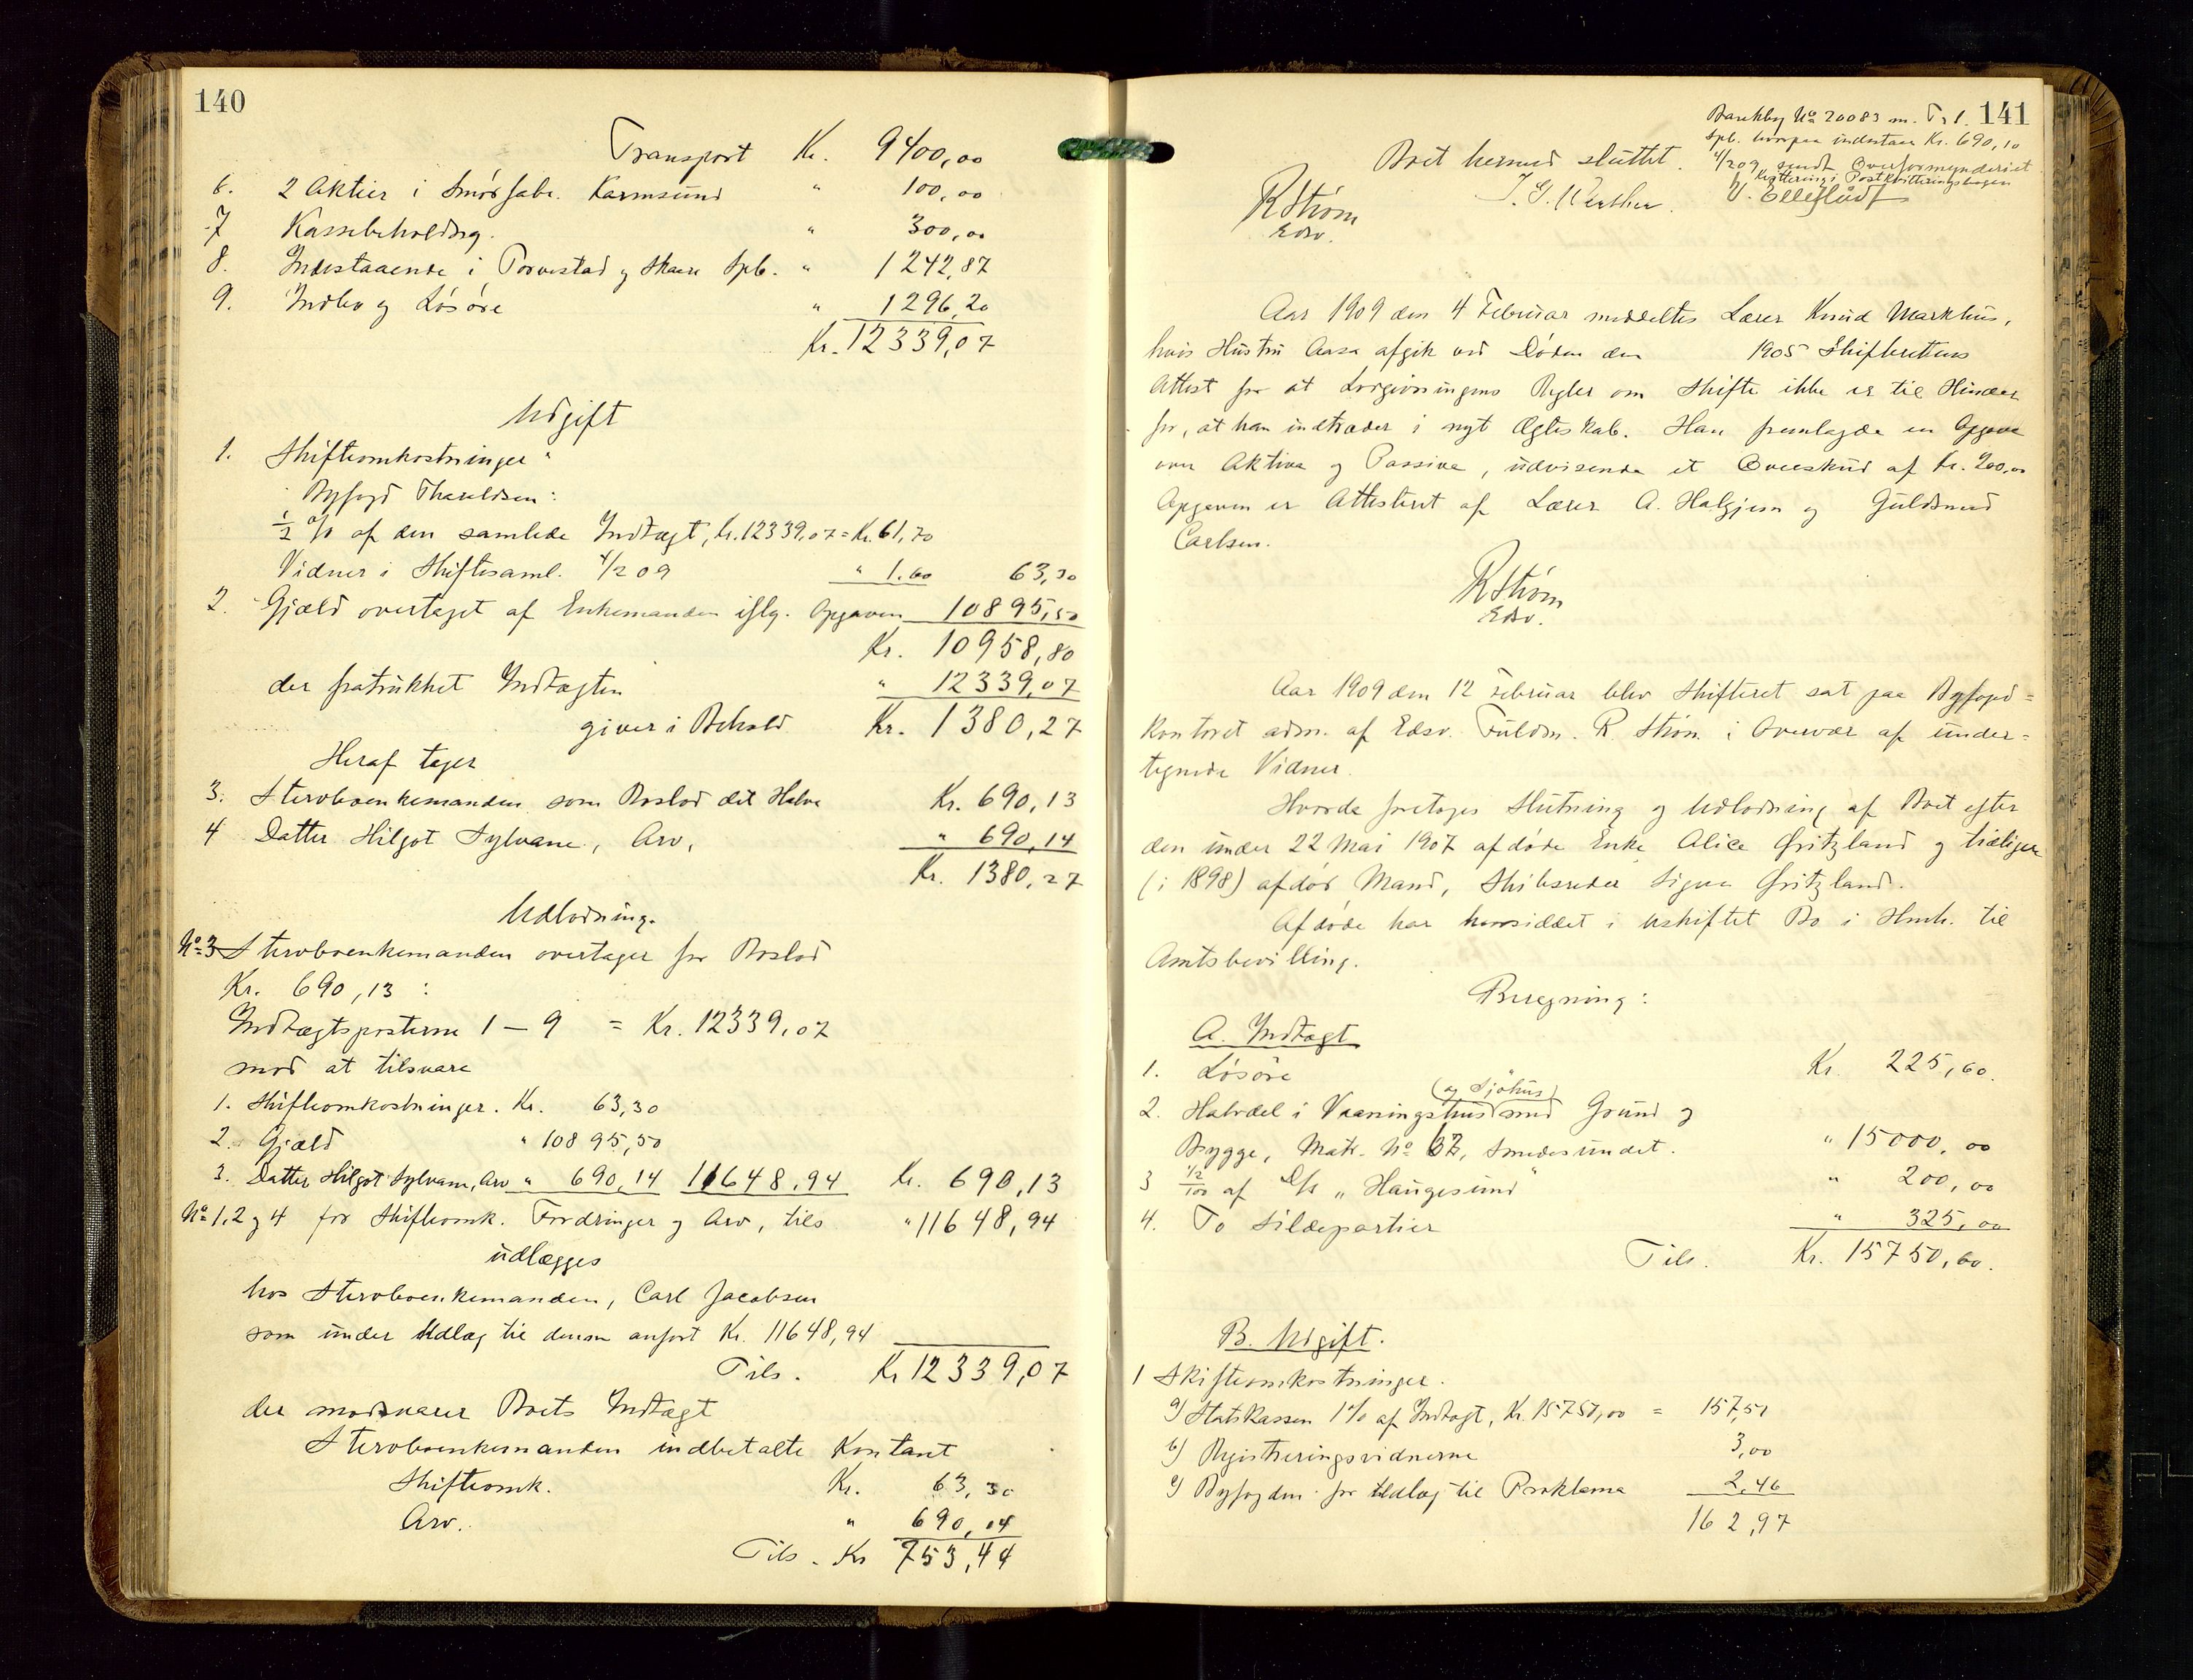 140
Transport Kr. 9400,00
6. 2 Aktier i Smørfabr. Karmsund " 100,00
7 Kassebeholdng. " 300,00
8. Indestaaende i Torvestad og Skaare Spb. " 1242,87
9. Indbo og Løsøre " 1296,20
Kr. 12339,07
Udgift
1. Skifteomkostninger "
Byfogd Tharaldsen:
1/2 % af den samlede Indtægt, Kr. 12339,07 = Kr. 61,70
Vidner i Skiftesaml. 4/2 09 " 1.60 63,30
2. Gjæld overtaget af Enkemanden iflg. Opgaven 10895,50
Kr. 10958,80
der fratrukket Indtægten " 12339,07
giver i Behold Kr. 1380,27
Heraf tager
3. Stervboenkemanden som Boslod det Halve Kr. 690,13
4 Datter Hilgot Sylvane, Arv, " 690,14
Kr. 1380,27
Udlodning.
No 3 Stervboenkemanden overtager for Boslod
Kr. 690,13 :
Indtægtsposterne 1 – 9 = Kr. 12339,07
mod at tilsvare
1. Skifteomkostninger. Kr. 63,30
2. Gjæld " 10895,50
3. Datter Hilgot Sylvane, Arv " 690,14 11648,94 Kr. 690,13
No 1, 2 og 4 for Skifteomk. Fordringer og Arv, tils " 11648,94
udlægges
hos Stervboenkemanden, Carl Jacobsen
som under Udlæg til denne anført Kr. 11648,94
Tils. Kr 12339,07
der modsvarer Boets Indtægt
Stervboenkemanden indbetalte Kontant
Skifteomk. Kr. 63,30
Arv. " 690,14
Tils. Kr 753,44
141
Bankbog No 20083 m.
Spb. hvorpaa indestaar Kr. 690,10
4/2 09 sendt Overformynderiet
Kvittering i Postkvitteringsbogen
Boet hermed sluttet.
RStrøm
Edsv.
Aar 1909 den 4 Februar meddeltes Lærer Knud Markhus,
hvis Hustru Aasa afgik ved Døden den 1905 Skifterettens
Attest for at Lovgivningens Regler om Skifte ikke er til Hinder
for, at han indtræder i nyt Ægteskab. Han fremlagde en Opgave
over Aktiva og Passiva, udvisende et Overskud af Kr. 200,00
Opgaven er Attesteret af Lærer A. Halgjem og Guldsmed
Carlsen.
RStrøm
Edsv.
Aar 1909 den 12 Februar blev Skifteret sat paa Byfogd=
kontoret adm. af Edsv. Fuldm. R. Strøm i Overvær af under=
tegnede Vidner.
Hvorda foretoges Slutning og Udlodning af Boet efter
den under 22 Mai 1907 afdøde Enke Alice Gritzland og tidligere
(i 1898) afdød Mand, Skibsreder Sigva Gritzland.
Afdøde har hensiddet i uskiftet Bo i Hnh. til
Amtsbevilling.
Beregning:
A. Indtægt
1. Løsøre Kr 225,60.
(og Sjøhus)
2. Halvdel i Vaaningshus med Grund og
Brygge, Matr. No 67, Smedesundet. " 15000,00
3 1/2/100 af D/S „Haugesund" " 200,00
4. To Sildepartier " 325,00
Tils. Kr. 15750,60.
B. Udgift.
1 Skifteomkostninger.
a) Statskassen 1% af Indtægt, Kr. 15750,00 = 157,51
b) Registreringsvidnerne 3,00
c) Byfogden for Udlæg til Proklama 2,46
162,97